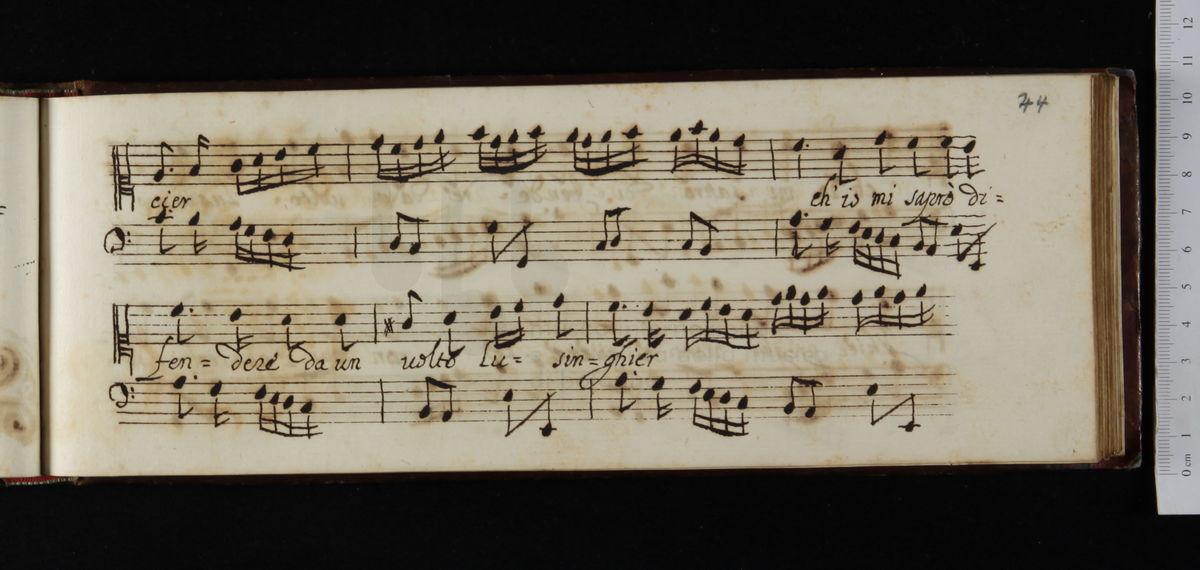 44
cier ch'io mi saprò di=
fen= dere da un volto lu= sin=ghier
12
11
10
9
8
7
6
5
4
3
2
1
0 cm